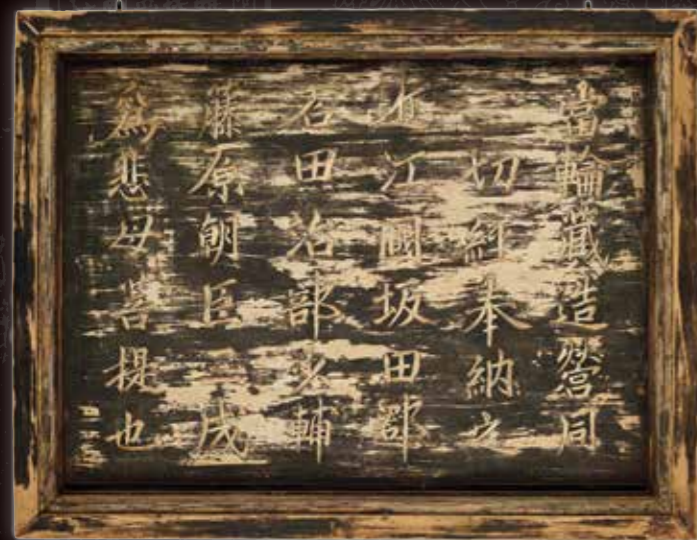 當輪藏造營同
切経奉納之
近江國坂田郡
石田治部少輔
藤原朝臣 成
為悲母菩提也